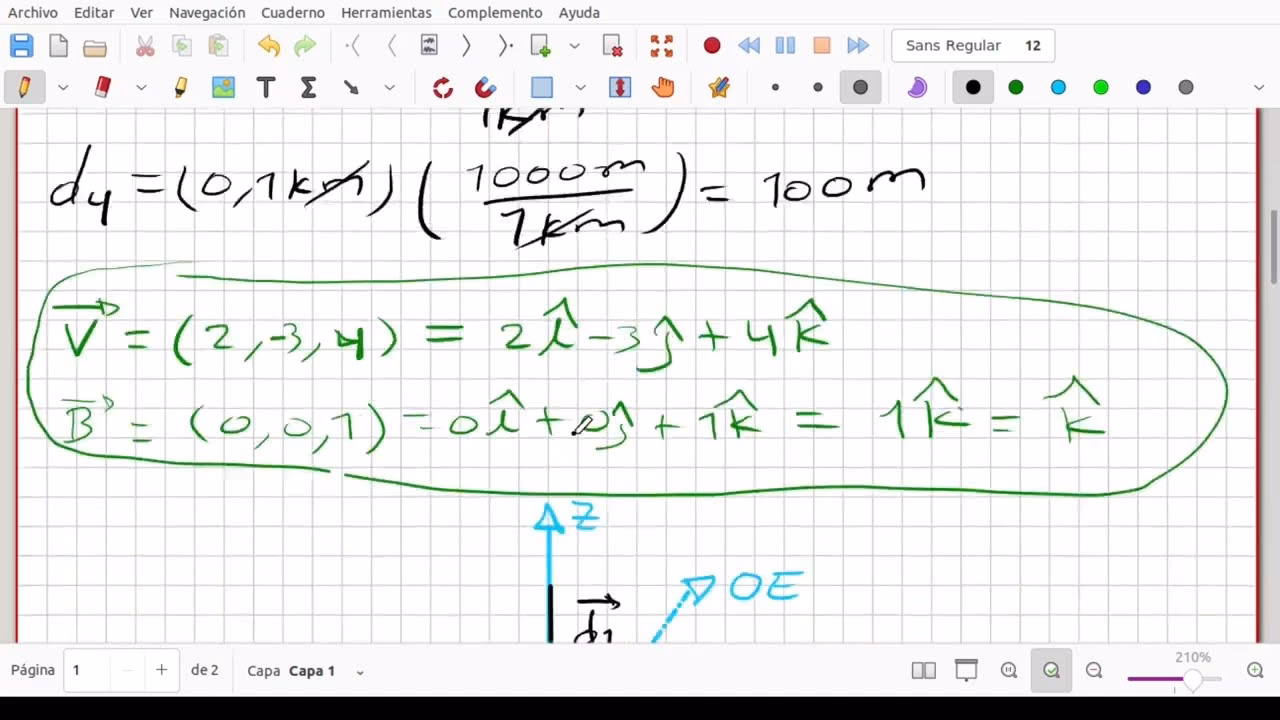 Archivo Editar Ver Navegación Cuaderno Herramientas Complemento Ayuda
Sans Regular 12
1km
d4 = (0,1km) (1000m / 1km) = 100m
V⃗ = (2,-3,4) = 2î -3ĵ + 4k̂
B⃗ = (0,0,1) = 0î + 0ĵ + 1k̂ = 1k̂ = k̂
Z
OE
d⃗1
Página 1 de 2 Capa Capa 1 210%